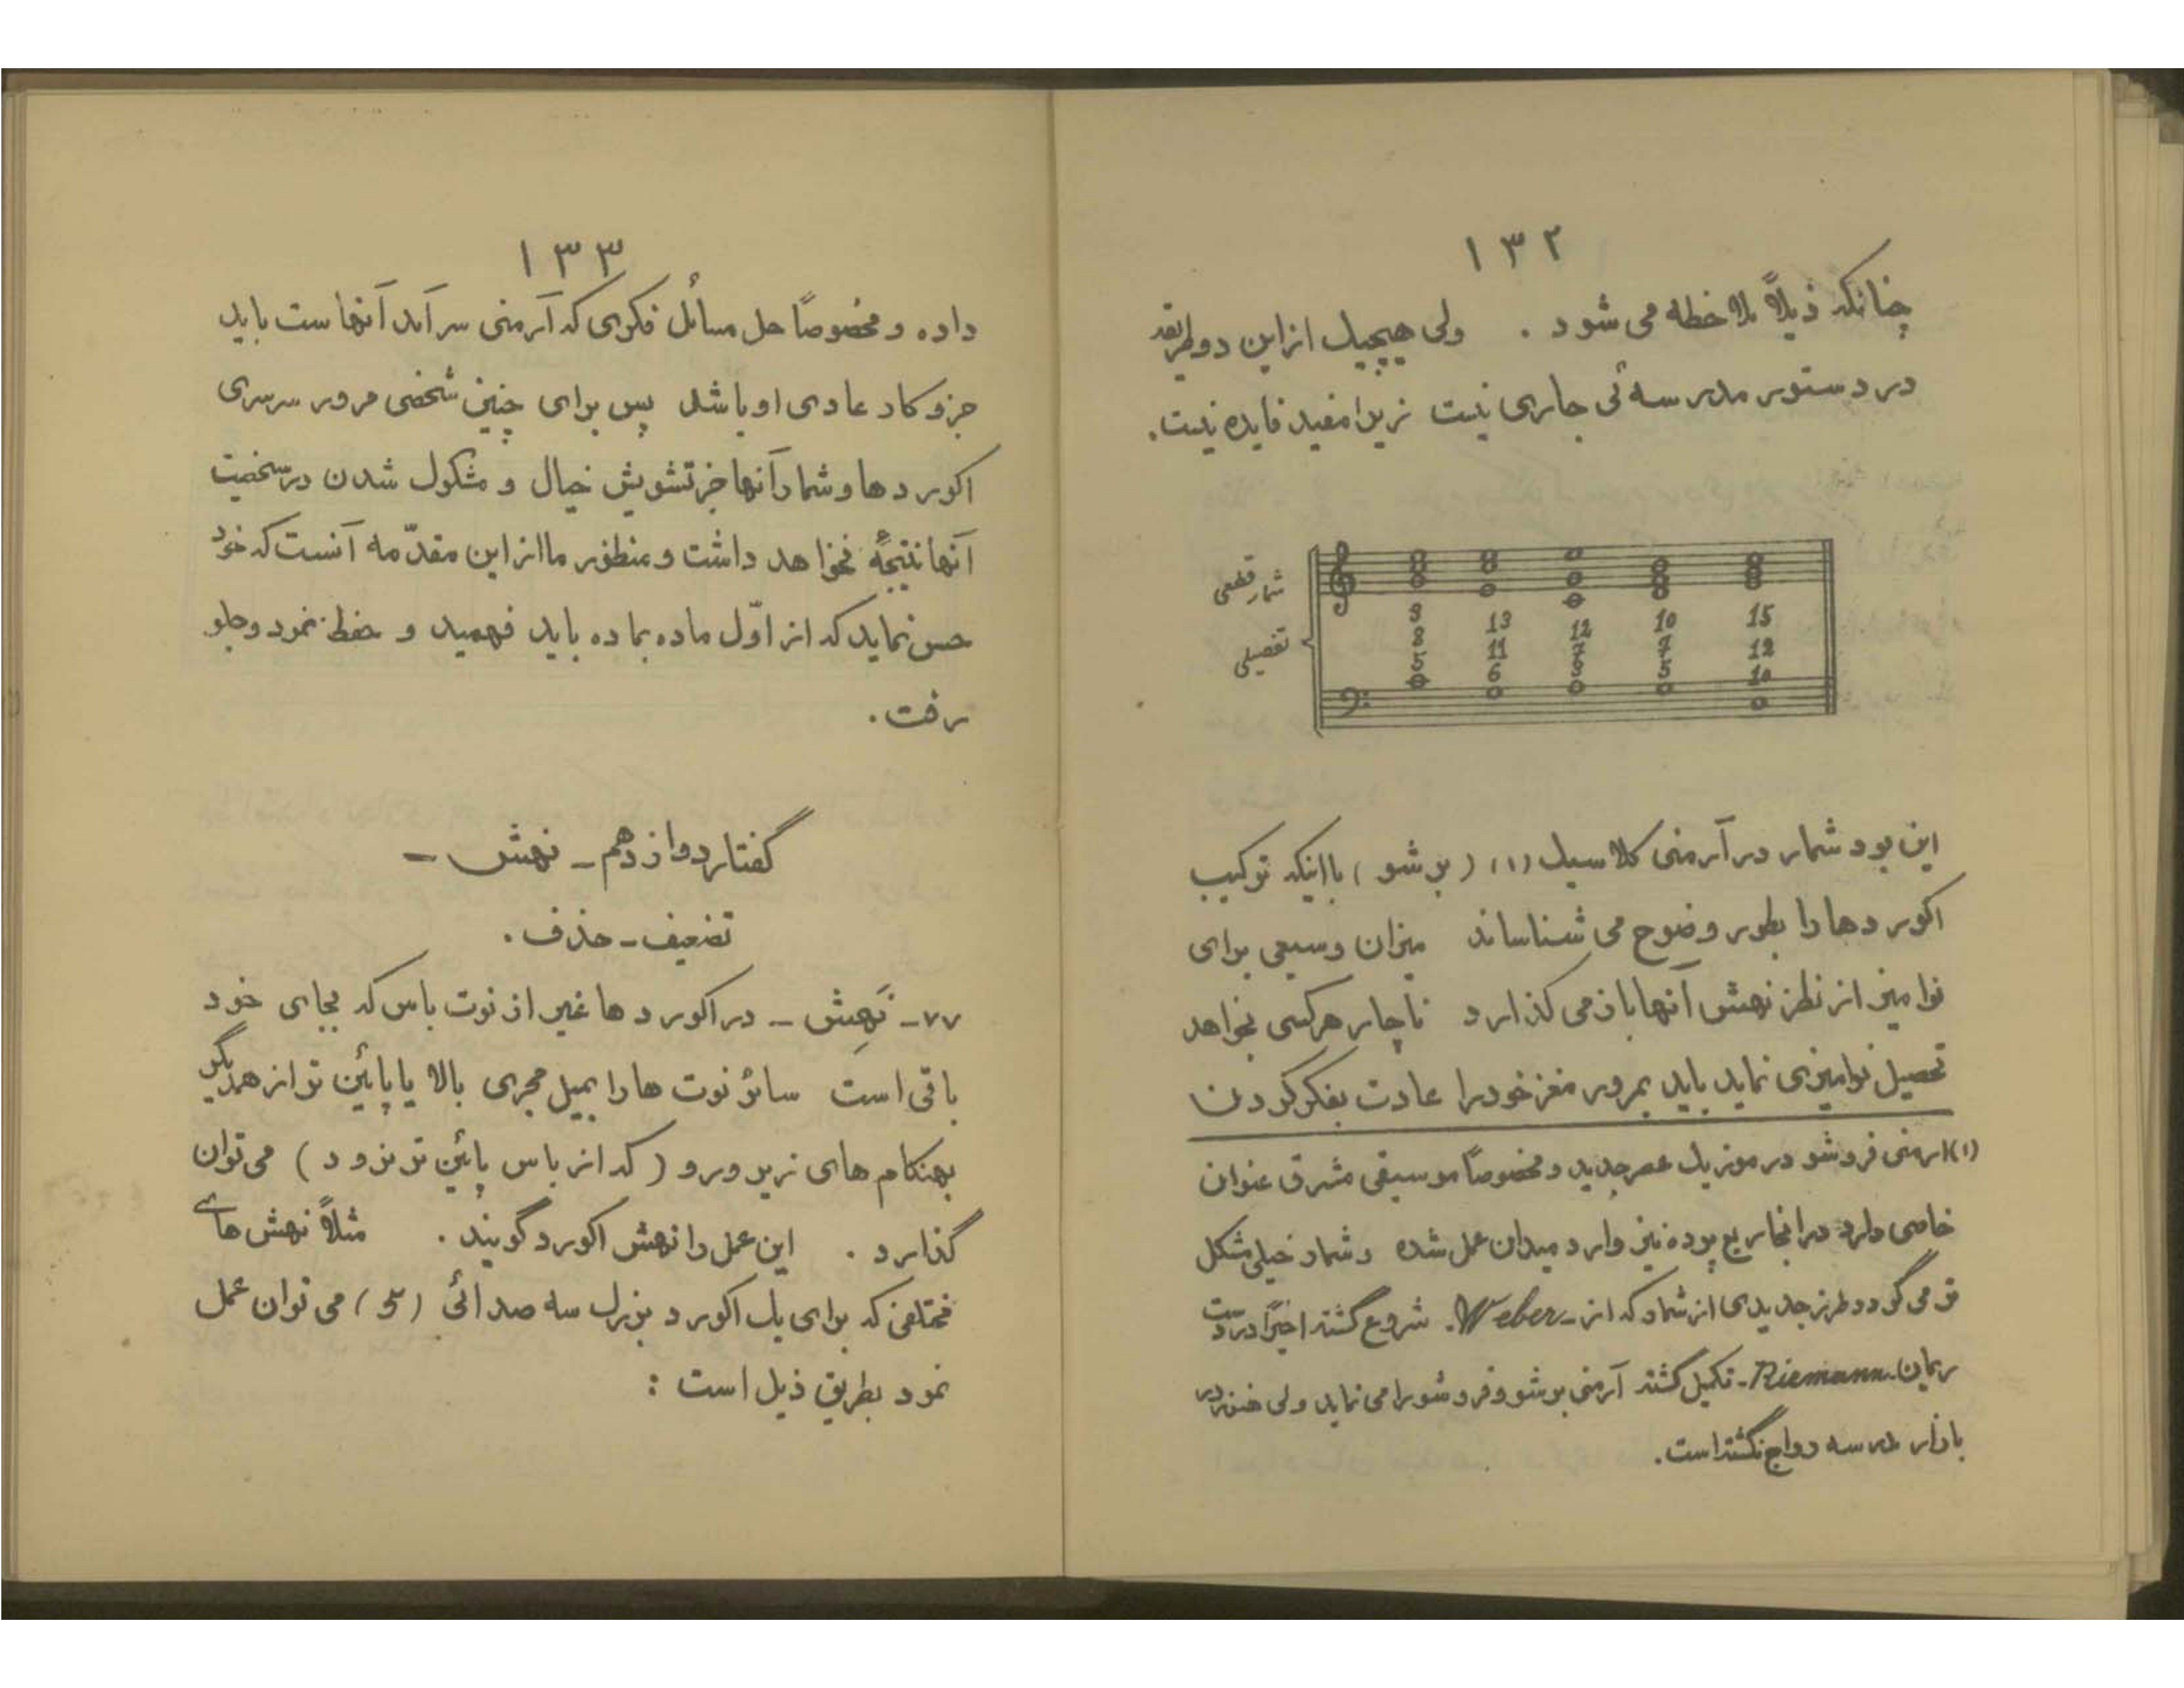 ۱۳۲
چنانکه ذیلاً ملاحظه می شود . ولی هیچیک از این دو طریقه
در دستور مدرسه ئی جاری نیست زیرا مفید فایده نیست.
شمار قطعی
تفصیلی
3 13 12 10 15
8 11 7 12
5 6 3 5 10
این بود شمار در آرمنی کلاسیک (۱) ( بر شو ) با اینکه ترکیب
اکوردها را بطور وضوح می شناساند میزان وسیعی برای
نوامیز از نظر نهش آنها باز می گذارد ناچار هرکسی بخواهد
تحصیل نوامیزی نماید باید بمرور مغز خود را عادت بفکر کردن
(۱) ارمنی فروشو در موزیک عصر جدید و مخصوصاً موسیقی مشرق عنوان
خاصی دارد در انجا ربع پرده نیز وارد میدان عمل شده و شمار خیلی مشکل
تر می گردد طرز جدیدی از شمار که از -Weber. شروع گشته اخیراً در دست
ریمان -Riemann- تکمیل گشته آرمنی بر شو و فرو شو را می نماید ولی هنوز در
بازار مدرسه رواج نگشته است.
۱۳۳
داده و مخصوصاً حل مسائل فکری که آرمنی سر آمد آنهاست باید
جزو کار عادی او باشد پس برای چنین شخصی مرور سرسری
اکوردها و شمار آنها جز تشویش خیال و مشکول شدن در سختیت
آنها نتیجهٔ نخواهد داشت و منظور ما از این مقدّمه آنست که خود
حس نماید که از اوّل ماده بماده باید فهمید و حفظ نمود و جلو
رفت.
گفتار دوازدهم - نهش -
تضعیف - حذف.
۷۷- نَهِش - در اکوردها غیر از نوت باس که بجای خود
باقی است سائر نوت ها را بمیل مجری بالا یا پائین تر از همدیگر
بهنگام های زیر و رو ( که از باس پائین تر نرود ) می توان
گذارد . این عمل را نهش اکورد گویند . مثلاً نهش های
مختلفی که برای یک اکورد بزرک سه صدائی می توان عمل
نمود بطریق ذیل است :